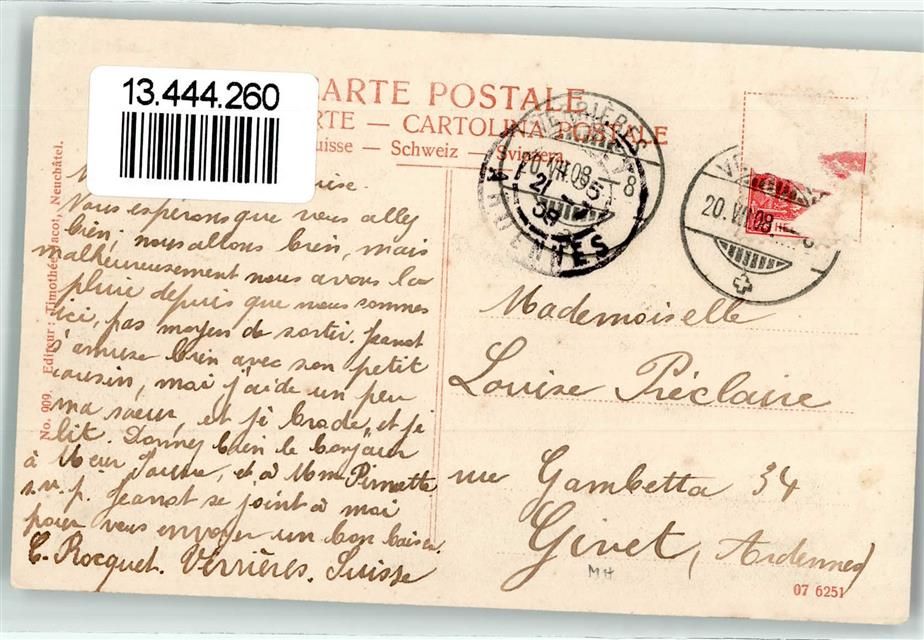 13.444.260
CARTE POSTALE
CARTOLINA POSTALE
Suisse — Schweiz — Svizzera
No. 909. Editeur: Timothée Jacot, Neuchâtel.
Nous espérons que vous allez
bien, nous allons bien, mais
malheureusement nous avons la
pluie depuis que nous sommes
ici, pas moyen de sortir. Jeanot
s'amuse bien avec son petit
cousin, moi j'aide un peu
ma sœur, et je brode, et je
lit. Donnez bien le bonjour
à Meur et à Mme Pirnette
s.v.p. Jeanot se joint à moi
pour vous envoyer un bon baiser.
C. Rocquet. Verrières. Suisse
VERRIÈRES
20.VII.08. 8
21
08
ARDENNES
20.VII.08.
Mademoiselle
Louise Préclaire
rue Gambetta 34
Givet (Ardennes)
MH
07 6251